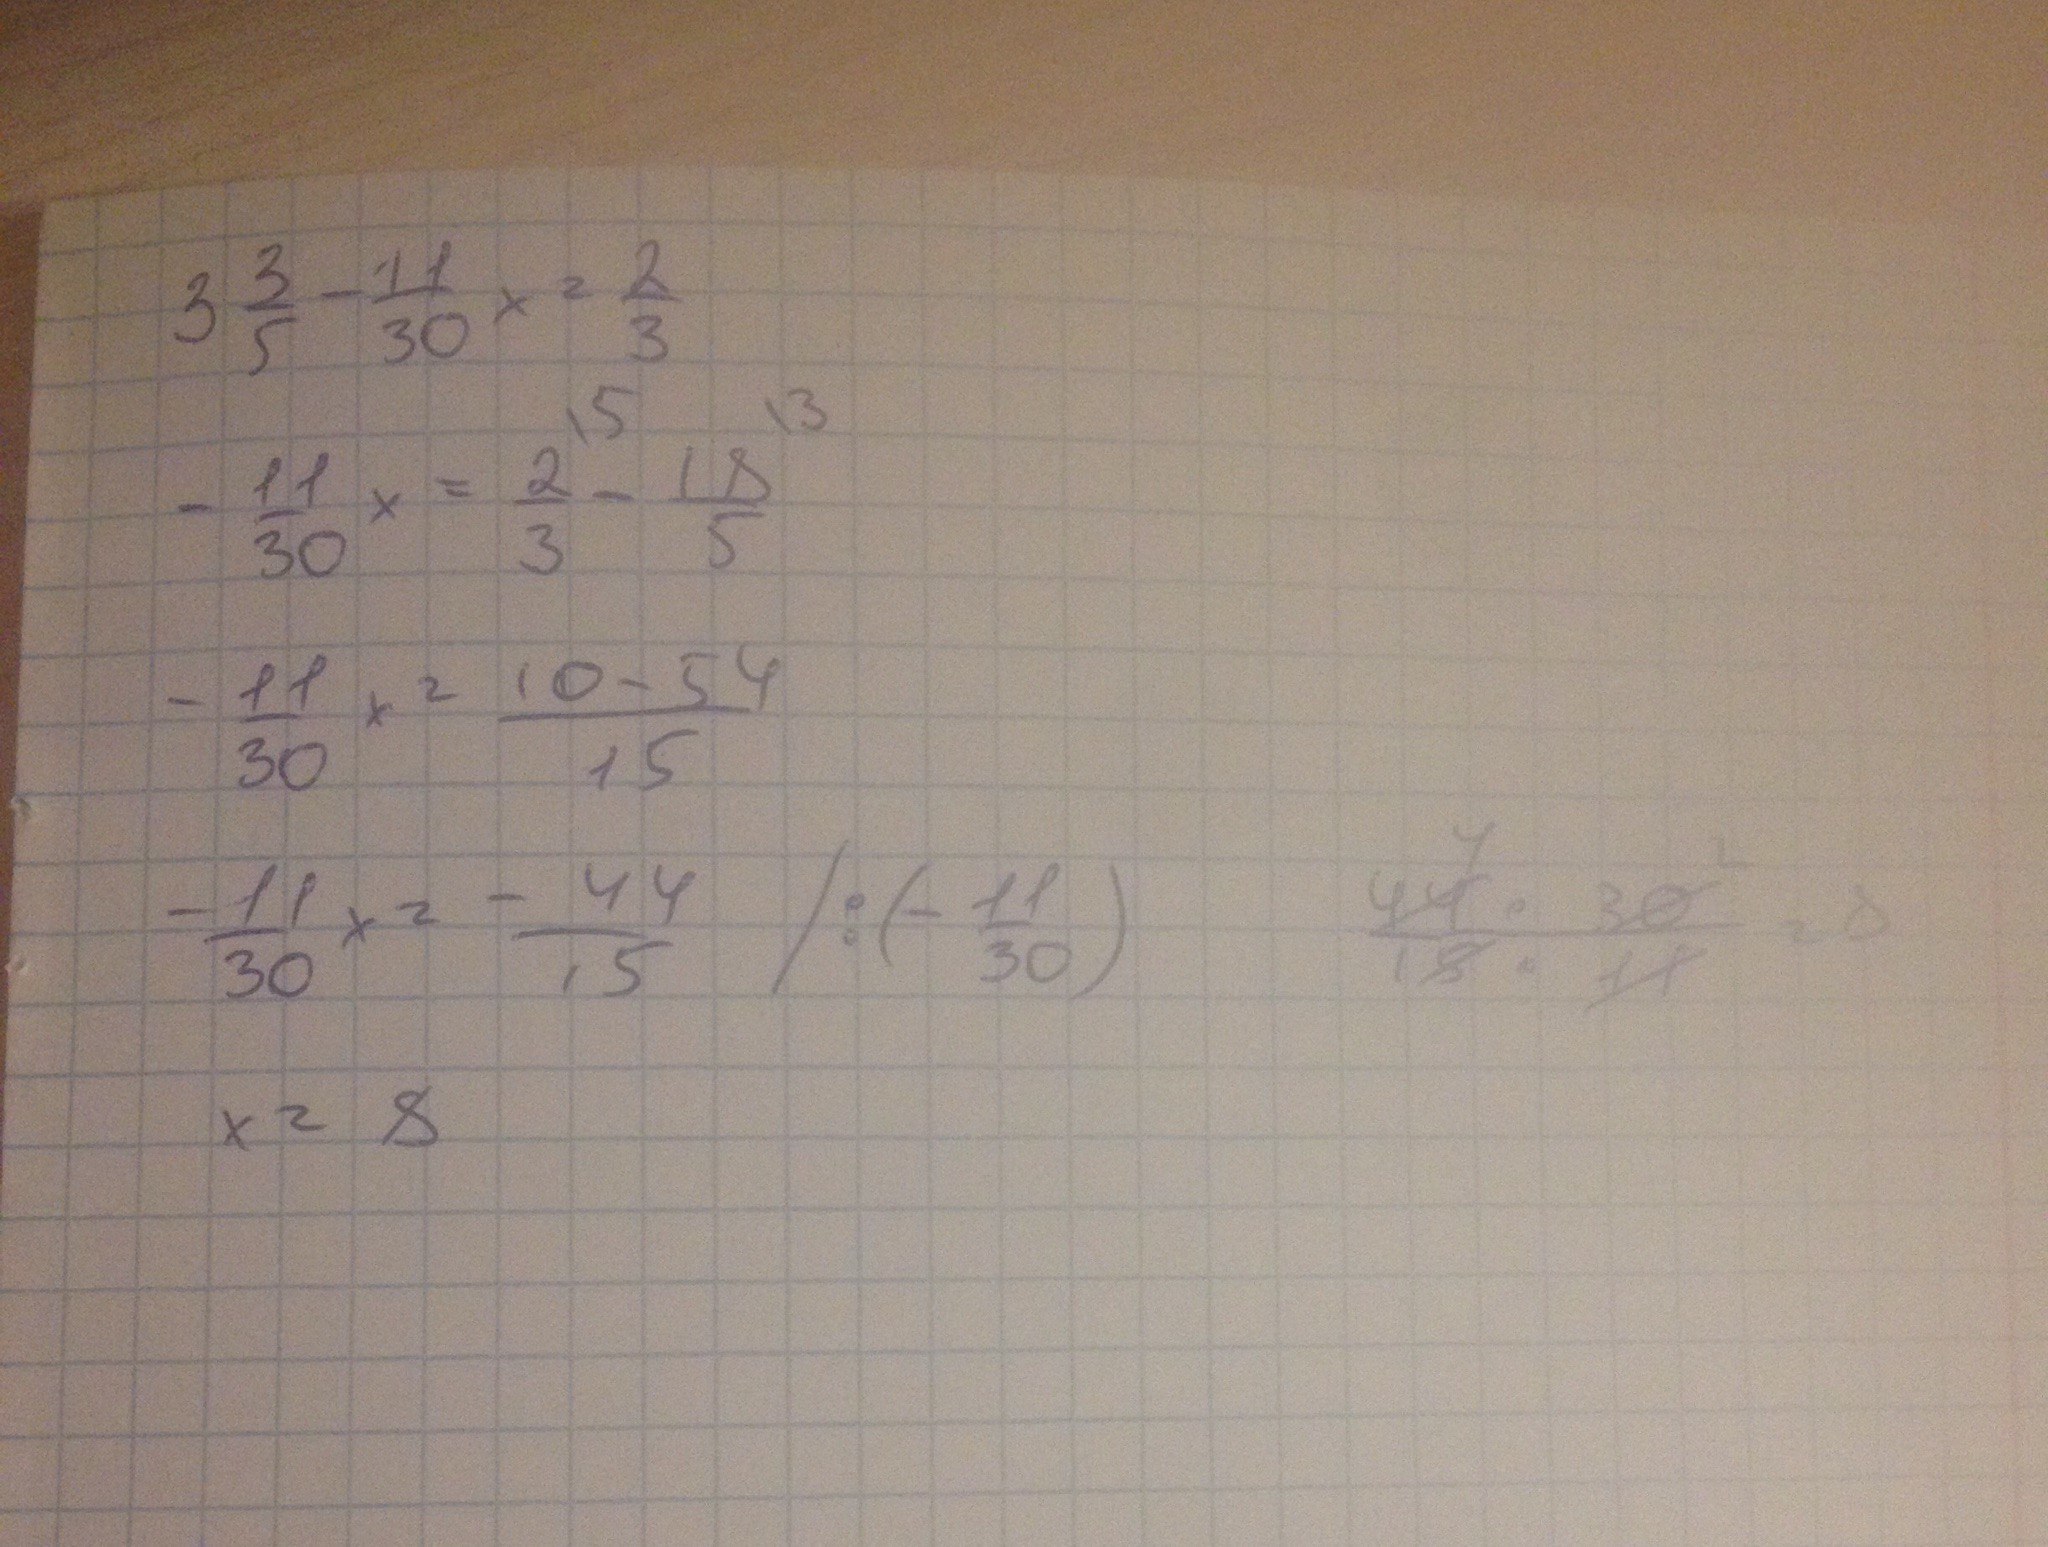 3 3/5 - 11/30 x = 2/3
- 11/30 x = 2/3 \5 - 18/5 \3
- 11/30 x = (10 - 54)/15
- 11/30 x = - 44/15 / : (- 11/30)
44 4 · 30 2 / 15 · 11 = 8
x = 8